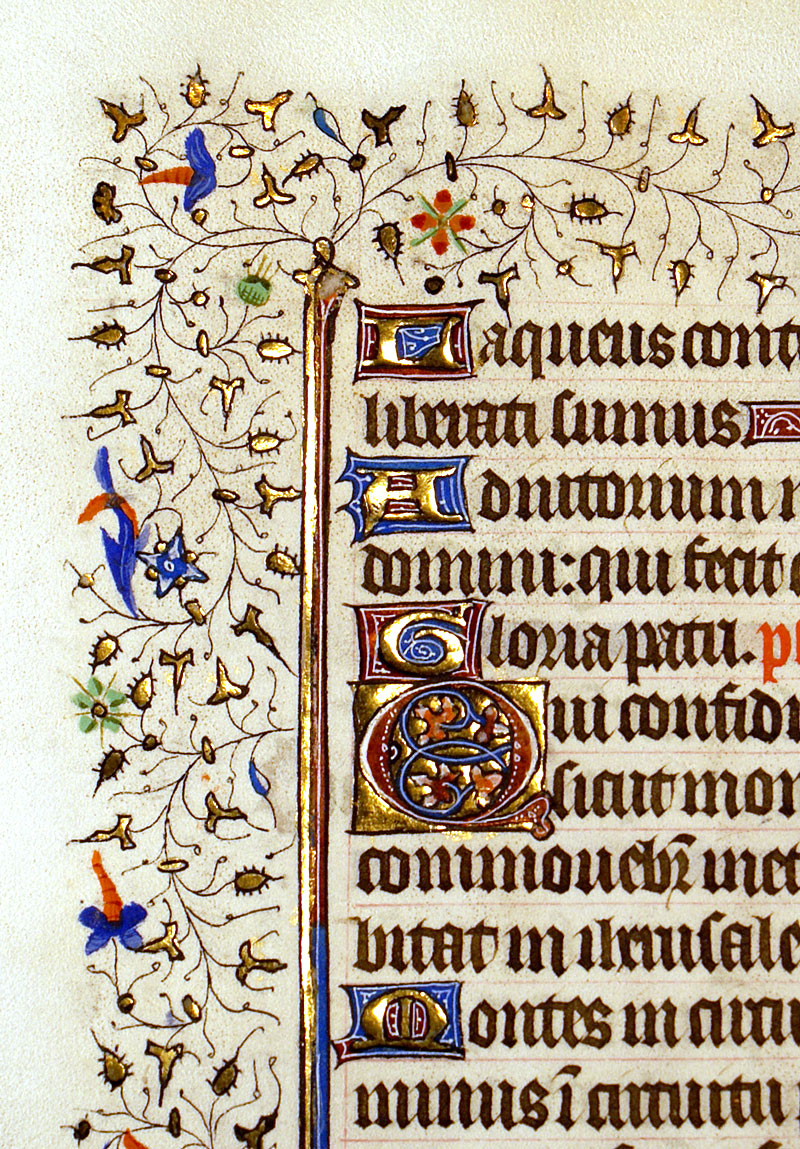 Laqueus cont
liberati sumus
Adiutorium n
domini: qui fecit c
Gloria patri. ps
Qui confidu
sicut mon
commouebr̃ in et
bitat in iherusale
Montes in circui
minus ī circuitu